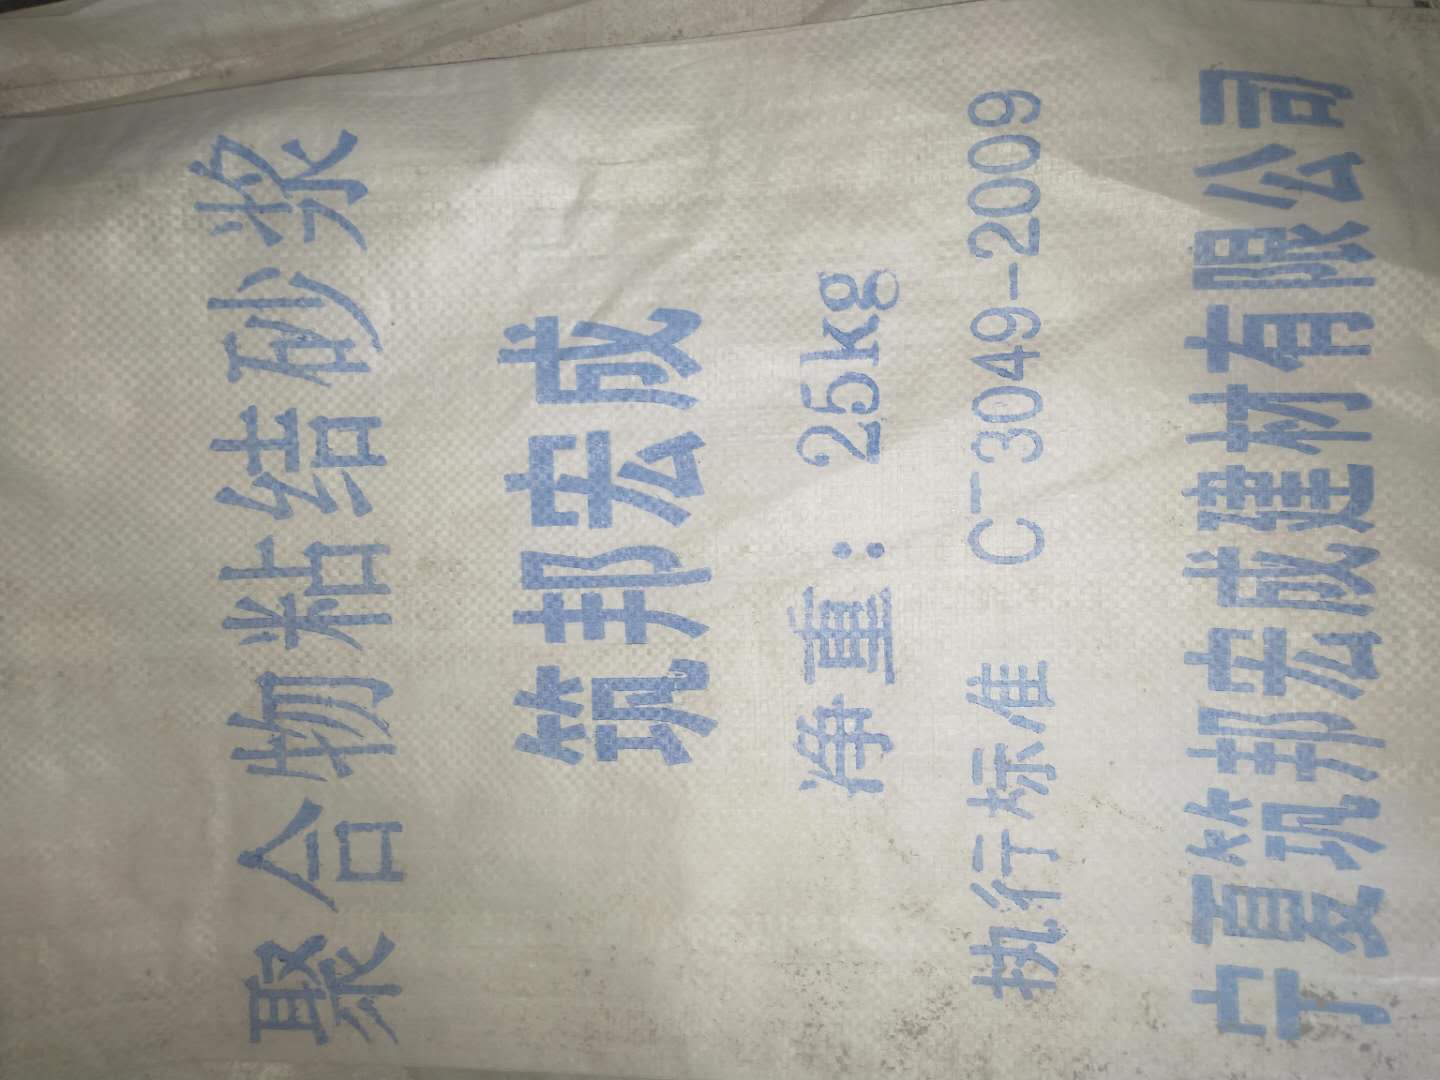 聚合物粘结砂浆
筑邦宏成
净重：25kg
执行标准 CT3049-2009
宁夏筑邦宏成建材有限公司